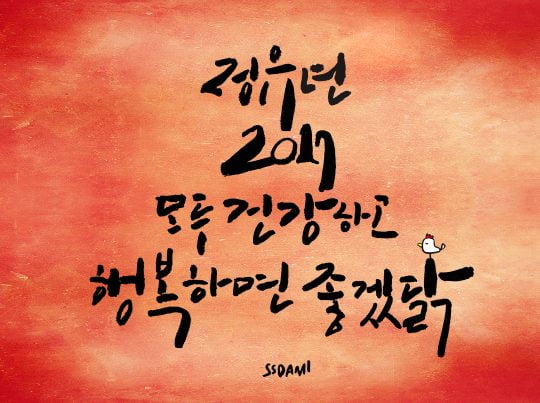 정유년
2017
모두 건강하고
행복하면 좋겠닭
SSDAMI